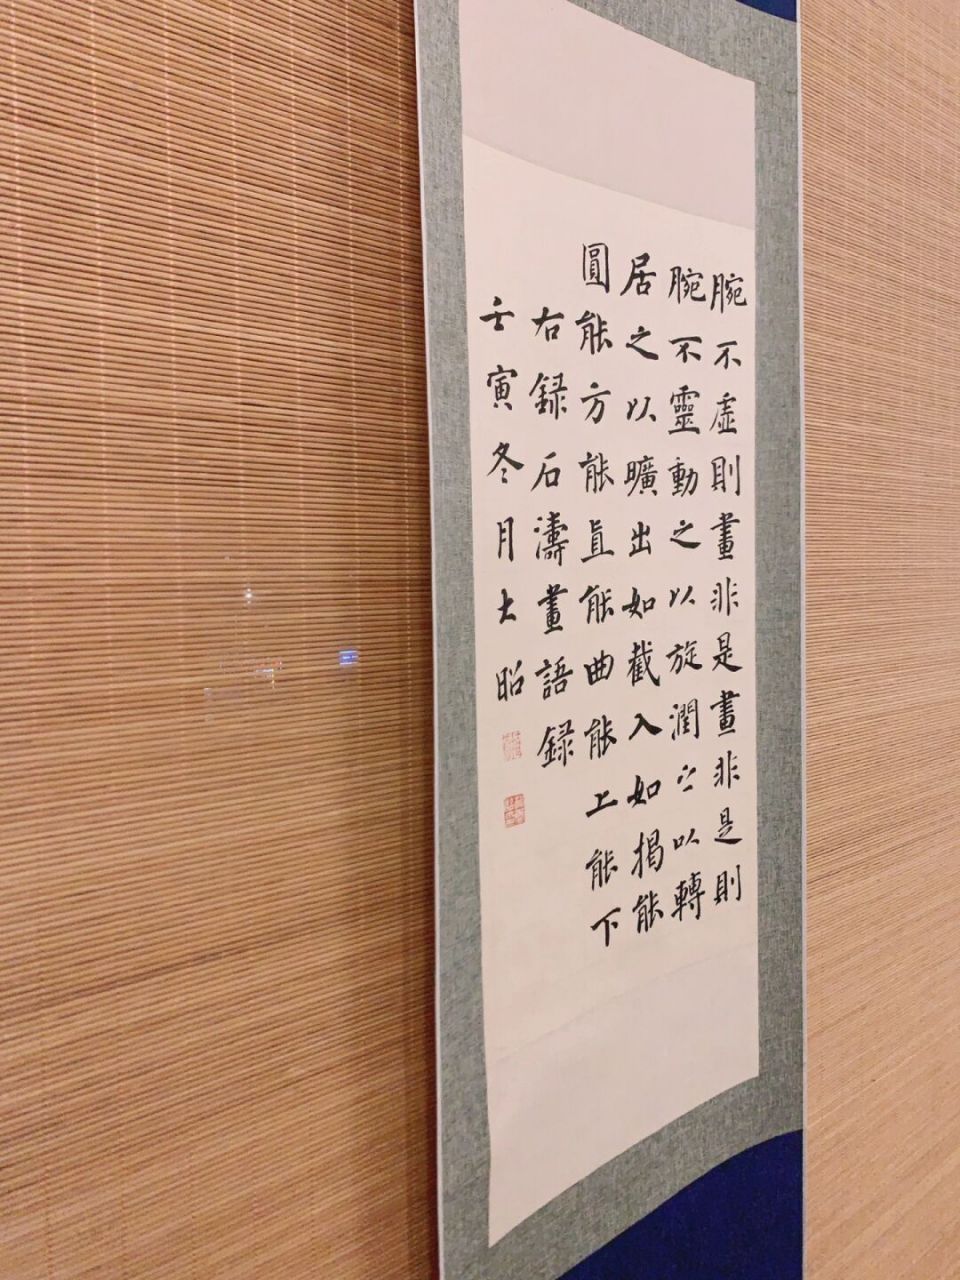 腕不虛則畫非是畫非是則
腕不靈動之以旋潤之以轉
居之以曠出如截入如揭能
圓能方能直能曲能上能下
右録石濤畫語録
壬寅冬月大昭